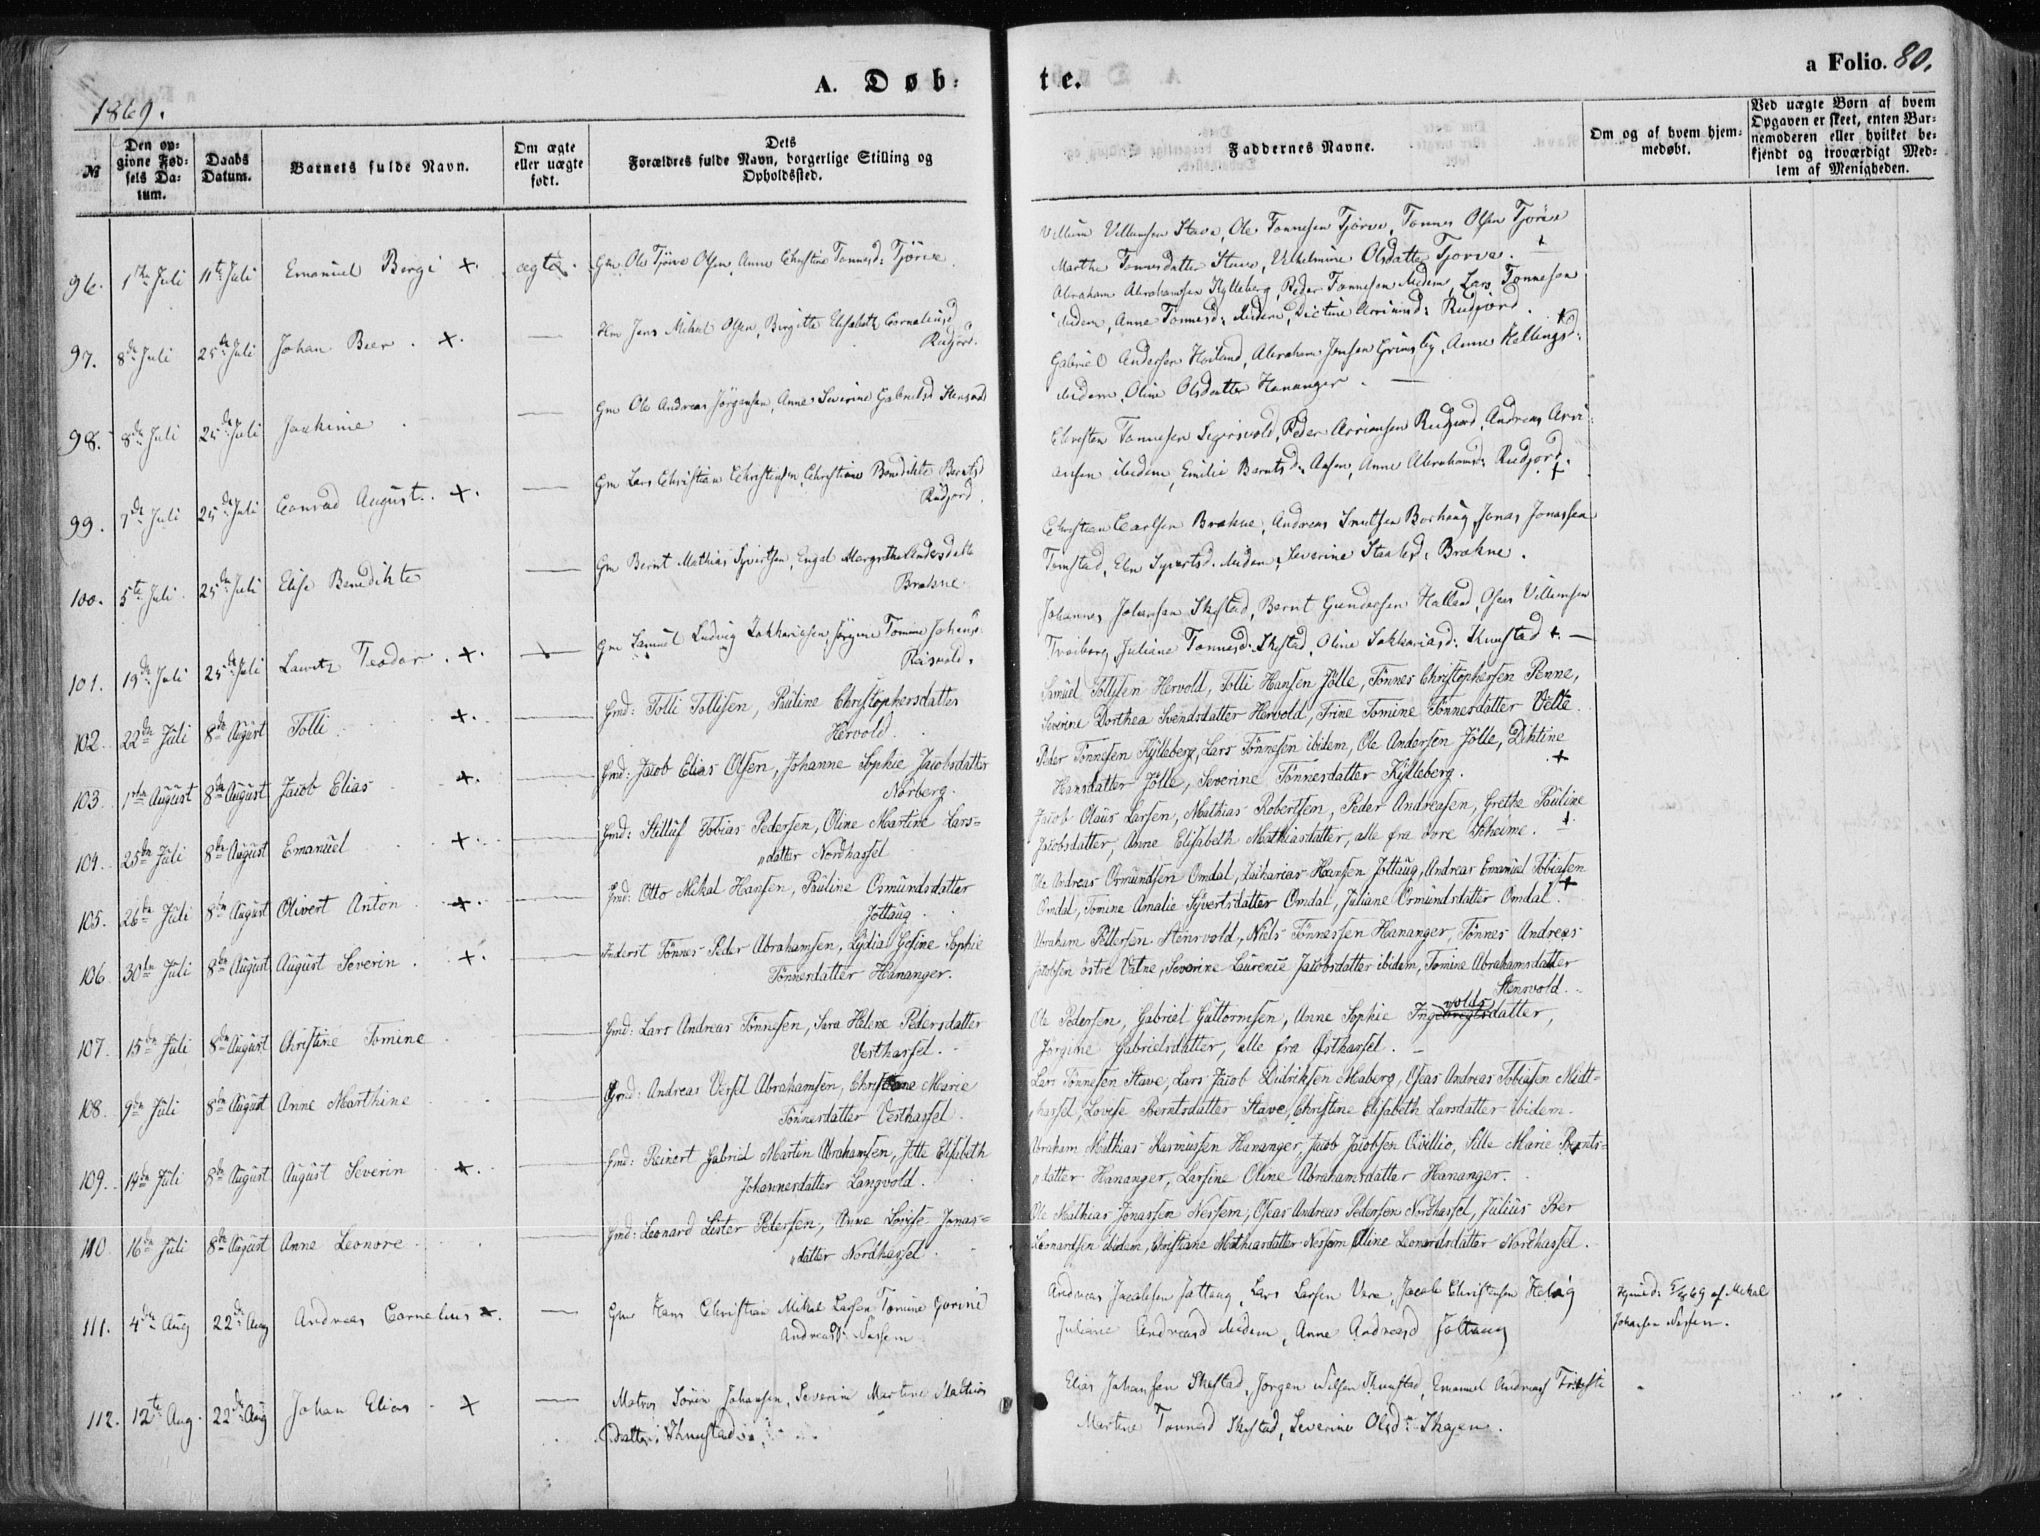 A. Døb-
te.
a Folio. 80.
1869.
№
Den op-
givne Fød-
sels Da-
tum.
Daabs
Datum.
Barnets fulde Navn.
Om ægte
eller uægte
født.
Dets
Forældres fulde Navn, borgerlige Stilling og
Opholdssted.
Faddernes Navne.
Om og af hvem hjem-
medøbt.
Ved uægte Børn af hvem
Opgaven er skeet, enten Bar-
nemoderen eller hvilket be-
kjendt og troværdigt Med-
lem af Menigheden.
96. 1ste Juli 11te Juli Emanuel Bergi +. ægte. Gm Ole Tjörve Olsen, Anne Christine Tønnesd: Tjörve
Villum Villumsen Stave, Ole Tønnesen Tjørve, Tønnes Olsen Tjörve
Marthe Tønnesdatter Stave, Vilhelmine Olsdatter Tjørve. +
97. 8de Juli 25de Juli Johan Beer. +. — Hm Jens Mikal Olsen, Birgitte Elisabeth Corneliusd
Rudjord.
Abraham Abrahamsen Kylleberg, Peder Tønnesen ibidem, Lars Tønnesen
ibidem, Anne Tønnesd: ibidem, Dictine Arriansd: Rudjord.
98. 8de Juli 25de Juli Joakime — Gm Ole Andreas Jörgensen, Anne Severine Gabrielsd
Gabriel Andersen Høiland, Abraham Jensen Grimsby, Anne
ibidem, Oline Olsdatter Hananger. —
99. 7de Juli 25de Juli Conrad August. +. — Gm Lars Christian Christensen, Christiane Benedikte Berntsd
Rudjord.
Christen Tønnesen Sigersvold, Peder Arriansen Rudjord, Andreas Arri-
ansen ibidem, Emilie Berntsd: Aasen, Anne Abrahamsd: Rudjord. +
100. 5te Juli 25de Juli Elise Benedikte — Gm Bernt Mathias Syvertsen, Engel Margrethe Andersdatter
Brækne
Christian Carlsen Brækne, Andreas Knutsen Borhaug, Jonas Jonassen
Tomstad, Elen Syvertsd. ibidem, Severine Brækne.
101. 19de Juli 25de Juli Lauritz Teodor. +. — Gm Samuel Ludvig Zakkariasen, Jörgine Tomine Johansd.
Reisvold.
Johannes Johansen Skestad, Bernt Gundersen Halland, Oseas Villumsen
Juliane Tønnesd: Skestad, Oline Zakkariasd: Knustad +. —
102. 22de Juli 8de August Tolli +. — Gmd: Tolli Tollisen, Pauline Christophersdatter
Hervold.
Samuel Tollisen Hervold, Tolli Hansen Jölle, Tönnes Christophersen Penne,
Severine Dorthea Svendsdatter Hervold, Trine Tomine Tönnesdatter Velte.
103. 1ste August 8de August Jacob Elias +. — Gmd: Jacob Elias Olsen, Johanne Sophie Jacobsdatter
Norberg.
Peder Tönnesen Kylleberg, Lars Tönnesen ibidem, Ole Andersen Jölle, Dihtine
Hansdatter Jölle, Severine Tönnesdatter Kylleberg. +
104. 25de Juli 8de August Emanuel +. — Gmd: Stilluf Tobias Pedersen, Oline Martine Lars=
"datter Nordhassel
Jacob Olaus Larsen, Mathias Robertsen, Peder Andreasen, Grethe Pauline
Jacobsdatter, Anne Elisabeth Mathiasdatter, alle fra vore Skeime. +
105. 26de Juli 8de August Olivert Anton +. — Gmd: Otto Mikal Hansen, Pauline Osmundsdatter
Jöllaug
Ole Andreas Osmundsen Omdal, Zakarias Hansen Jöllaug, Andreas Emanuel Tobiasen
Omdal, Tomine Amalie Syvertsdatter Omdal, Juliane Osmundsdatter Omdal. +
106. 30de Juli 8de August August Severin. +. — Inderst Tönnes Peder Abrahamsen, Lydia Gesine Sophie
Tönnesdatter Hananger.
Abraham Pettersen Stensvold, Niels Tönnessen Hananger, Tönnes Andreas
Jacobsen östre Vatne, Severine Laurense Jacobsdatter ibidem, Tomine Abrahamsdatter
Stensvold.
107. 15de Juli 8de August Christine Tomine — Gmd: Lars Andreas Tönnesen, Sara Helene Pedersdatter
Vesthassel.
Ole Pedersen, Gabriel Guttormsen, Anne Sophie Ingevoldsdatter,
Jörgine Gabrielsdatter, alle fra Østhassel. —
108. 9de Juli 8de August Anne Marthine — Gmd: Andreas Versel Abrahamsen, Christiane Marie
Tönnesdatter Vesthassel.
Lars Tönnesen Stave, Lars Jacob Didriksen Maberg, Oseas Andreas Tobiasen Midt=
"hassel, Lovise Berntsdatter Stave, Christine Elisabeth Larsdatter ibidem.
109. 14de Juli 8de August August Severin +. — Gmd: Reinert Gabriel Martin Abrahamsen, Jette Elisabeth
Johannesdatter Langvold.
Abraham Mathias Rasmussen Hananger, Jacob Jacobsen Qvillio, Sille Marie Bernts-
"datter Hananger, Larsine Oline Abrahamsdatter Hananger.
110. 16de Juli 8de August Anne Leonore — Gmd: Leonard Lister Pedersen, Anne Lovise Jonas=
"datter Nordhassel
Ole Mathias Jonassen Nessem, Oseas Andreas Pedersen Nordhassel, Julius Peer
Leonardsen ibidem, Christiane Mathiasdatter Nessem, Oline Leonardsdatter Nordhassel.
111. 4de Aug 22de Aug Andreas Cornelius +. — Gm Hans Christian Mikal Larsen, Tomine Gurine
Andreasd: Nessem
Andreas Jacobsen Jøllaug, Lars Larsen Vere, Jacob Christensen
Juliane Andreasd ibidem, Anne Andreasd Jøllaug
Hjmmd: 5/8 69 af Mikal
Johansen Nessem.
112. 12te Aug. 22de Aug Johan Elias +. — Matros Sören Johansen, Severine Martine Mathias
datter Knustad
Elias Johansen Skestad, Jørgen Nilsen Knustad, Emanuel Andreas
Martine Tønnesd Skestad, Severine Olsd: Skagen.